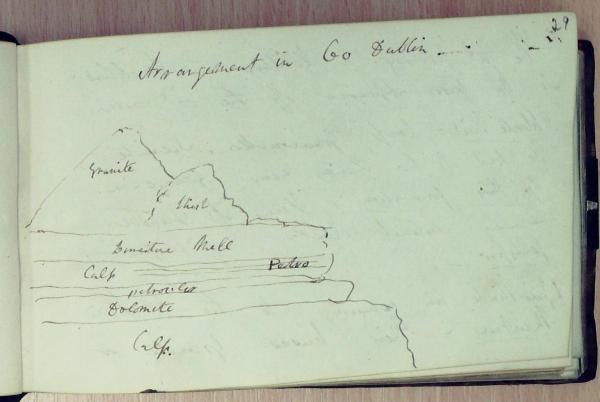 29
Arrangement in Co Dublin
Granite
Shist
Limestone Shell
Calp Petros
petroules
Dolomite
Calp.